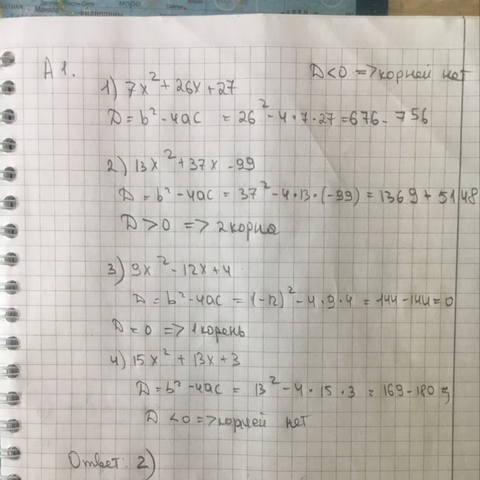 А1.
1) 7x² + 26x + 27
D<0 => корней нет
D = b² - 4ac = 26² - 4 • 7 • 27 = 676 - 756
2) 13x² + 37x - 99
D = b² - 4ac = 37² - 4 • 13 • (-99) = 1369 + 5148
D > 0 => 2 корня
3) 9x² - 12x + 4
D = b² - 4ac = (-12)² - 4 • 9 • 4 = 144 - 144 = 0
D = 0 => 1 корень
4) 15x² + 13x + 3
D = b² - 4ac = 13² - 4 • 15 • 3 = 169 - 180
D < 0 => корней нет
Ответ: 2)